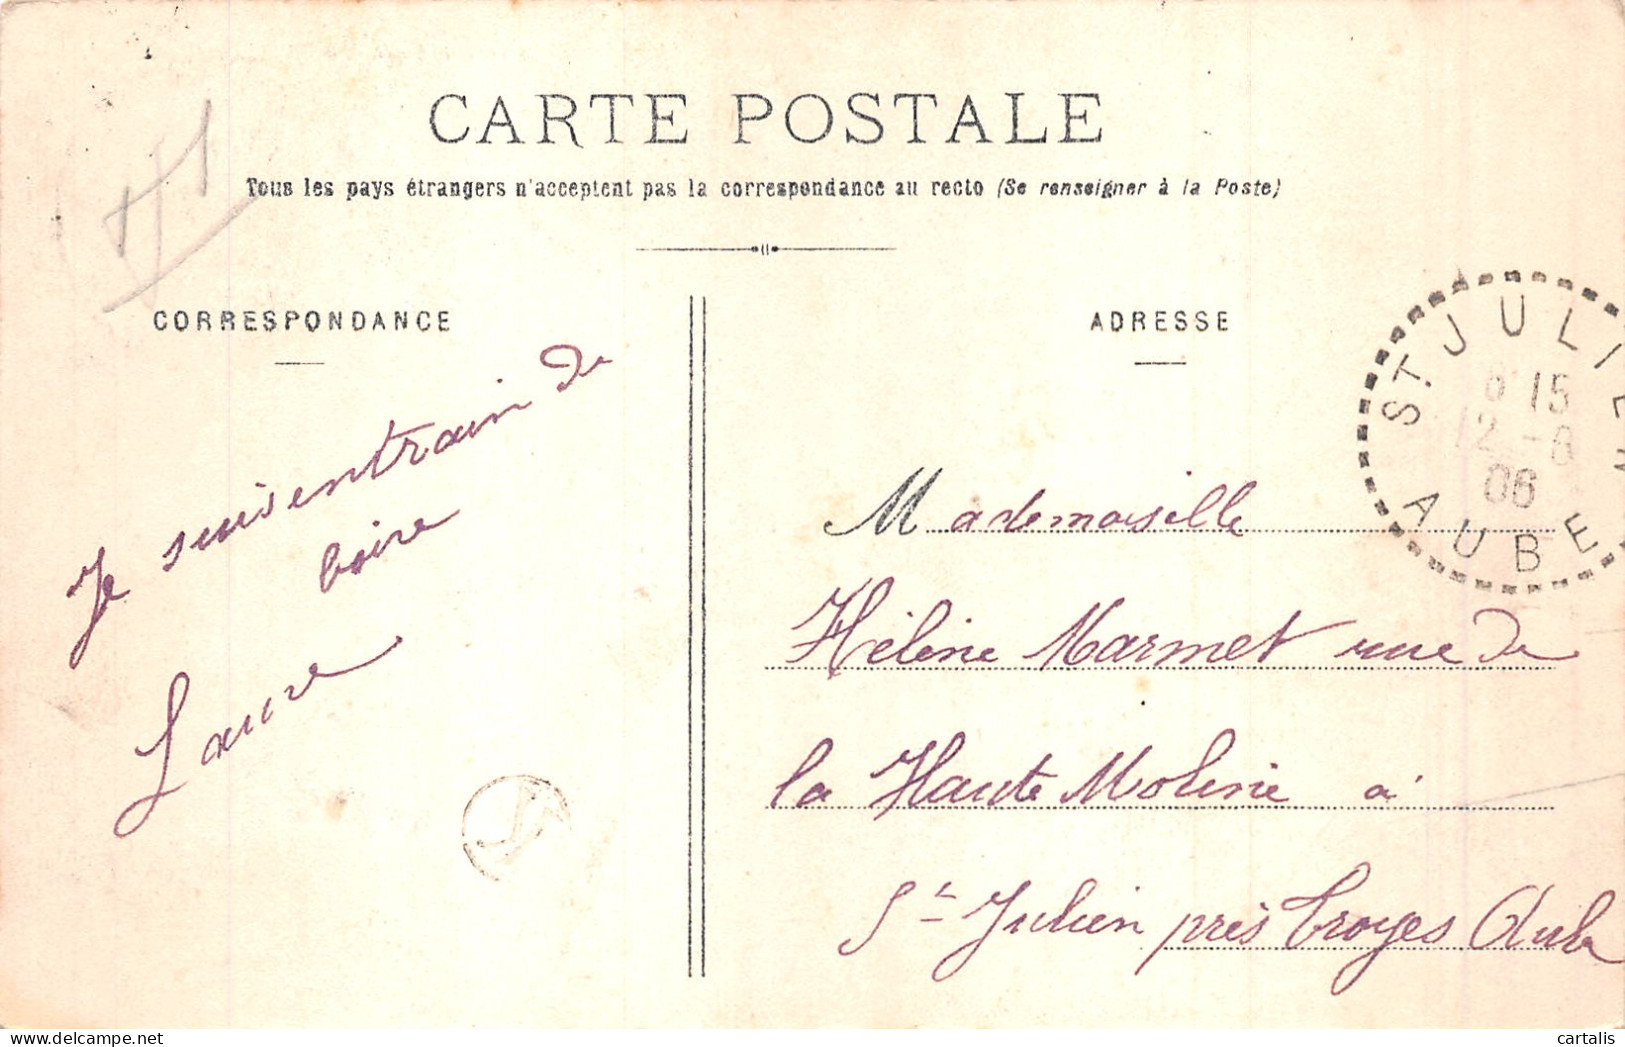 CARTE POSTALE
Tous les pays étrangers n'acceptent pas la correspondance au recto (Se renseigner à la Poste)
CORRESPONDANCE
Je suis entrain de
boire
Laure
ADRESSE
Mademoiselle
Hélène Marmet rue de
la Haute Moline à
St Julien près Troyes Aube
ST. JULIEN
15
12 - 8
06
AUBE
cartalis